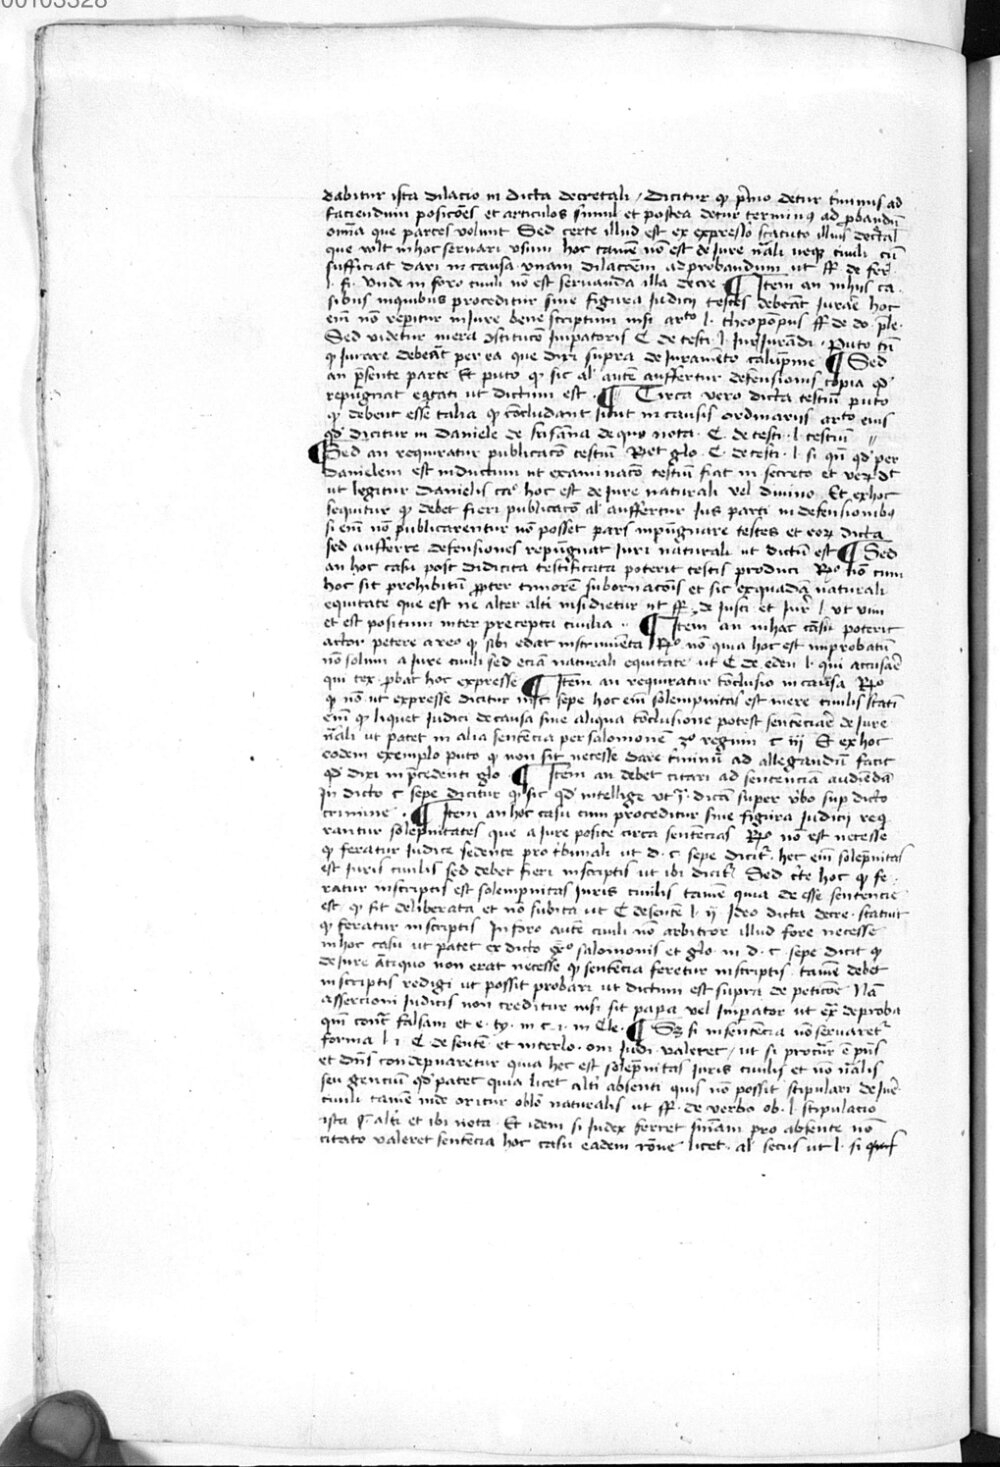 00103328
dabitur ista dilacio in dicta decretali / dicitur q̄ p̄mo detur t̄minus ad
faciendum posicōes et articulos simul et postea detur terminꝯ ad ꝓbandū
omīa que partes volunt Sed certe illud est ex expresso statuto illius dect̄al
que vult in hoc servari vsum hoc tamē nō est de Jure nāli neqꝫ ciuili cū
sufficiat dari in causa vnam dilacōem ad probandum ut ff de fer̄
l. fi. vnde in foro ciuili nō est servanda illa decre ¶ Item an in hiis ca
sibus in quibus proceditur sine figura Judicij testes debeāt Jurare hoc
eīm nō reperitur in Jure bene scriptum nisi arᵗᵒ l. theopōpus ff de do p̄le.
Sed videtur mera ꝯstitucō Impatoris C de testi. l. Jurisiurādi. Puto tn̄
q̄ iurare debeāt per ea que dixi supra de Juramēto calūpnie ¶ Sed
an p̄sente parte Et puto q̄ sic al autē auffertur defensionis copia qd̄
repugnat eqtati ut dictum est. ¶ Circa vero dicta testiū puto
q̄ debent esse talia q̄ cōcludant sicut in causis ordinariis arᵗᵒ eius
qd̄ dicitur in Daniele de susāna de quo nota. C. de testi. l. testiū
¶ Sed an requiratur publicacō testiū Rēt glo. C. de testi. l. si qn̄ qd̄ per
Danielem est inductum ut examinacō testiū fiat in secreto et
ut legitur Danielis caᵒ hoc est de Jure naturali vel divino Et ex hoc
sequitur q̄ debet fieri publicacō al auffertur Jus parti in defensionibꝯ
si eīm nō publicarentur nō posset pars inpūgnare testes et eorꝫ dicta
sed aufferre defensiones repūgnat Juri naturali ut dictū est ¶ Sed
an hoc casu post didicita testificata poterit testis produci Rᵒ nō cum
hoc sit prohibitū ꝓpter timorē subornacōis et sic ex quadā naturali
equitate que est ne alter alti insidietur ut ff de Justi et Jur̄ l. vt vim
et est positum inter precepta ciuilia .. ¶ Item an in hac casu poterit
actor petere a reo q̄ sibi edat instrumēta Rᵒ nō quia hoc est inprobatū
nō solum a Jure ciuili sed eciā naturali equitate ut C de eden l. qui accusare
qui tex. ꝓbat hoc expresse ¶ Item an requiratur cōclusio in causa Rᵒ
q̄ nō ut expresse dicitur in c sepe hoc eīm solempnitas est mere ciuilis statī
eīm q̄ liquet iudici de causa sine aliqua cōclusione potest sentenciare de Jure
nāli ut patet in alia sentēcia per salomonē 3ᵒ regum c iij Et ex hoc
eodem exemplo puto q̄ non sit necesse dare t̄minū ad allegandū facit
qd̄ dixi in p̄cedenti glo. ¶ Item an debet citari ad sentenciā audiēdā
in dicto c sepe dicitur q̄ sic qd̄ intellige vt j. dicā super v̄bo sup dicto
crimine . ¶ Item an hoc casu cum proceditur sine figura Judicij reqͥ
rantur solepnitates que a Jure posite circa sentencias Rᵒ nō est necesse
q̄ feratur iudice sedente pro tribunali ut d. c sepe dicitr̄ hec eīm solepnitas
est iuris ciuilis sed debet fieri inscriptis ut ibi dicitr̄ Sed c̄te hoc q̄ fe
ratur inscriptis est solempnitas Juris ciuilis tamē quia de esse sentencie
est q̄ sit deliberata et nō subita ut C de sentē l. ij Ideo dicta decre. statuit
q̄ feratur inscriptis In foro autē ciuili nō arbitror illud fore necesse
in hoc casu ut patet ex dicto salomonis et glo. in d. c. sepe dicit q̄
de iure ātiquo non erat necesse q̄ sentēcia feretur inscriptis tamē debet
inscriptis redigi ut possit probari ut dictum est supra de peticōe Nā
assercioni iudicis non creditur nisi sit papa vel imperator ut ex̄ de proba
qm̄ cont̄ falsam et e. ty. in c. i. in Cle. ¶ Sꝫ si in sentēcia nō servaretr̄
forma l. i. C de sentē et interlo. om̄ Judi valeret / ut si procur̄ ē p̄n̄s
et dn̄s condepnaretur quia hec est solepnitas Juris ciuilis et nō nālis
seu gencium qd̄ patet quia licet alti absenti quis nō possit stipulari de Jure
ciuili tamē inde oritur oblō naturalis ut ff. de verbo ob. l. stipulacio
ista §. alti et ibi nota. Et idem si Judex ferret sn̄iam pro absente nō
citato valeret sentēcia hoc casu eadem rōne licet. al secus ut l. si